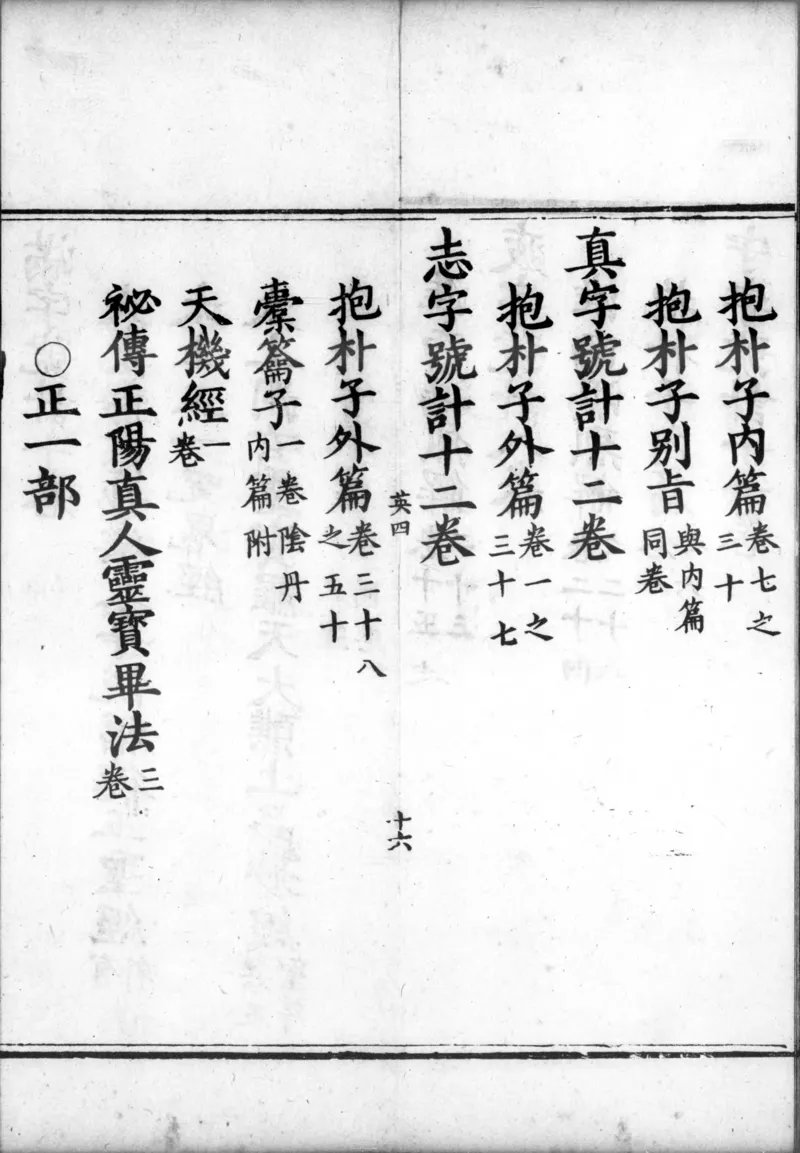 抱朴子内篇卷七之三十
抱朴子别旨與内篇同卷
真字號計十二卷
抱朴子外篇卷一之三十七
志字號計十二卷
英四 十六
抱朴子外篇卷三十八之五十
橐籥子一卷陰丹内篇附
天機經一卷
祕傳正陽真人靈寶畢法三卷
○正一部